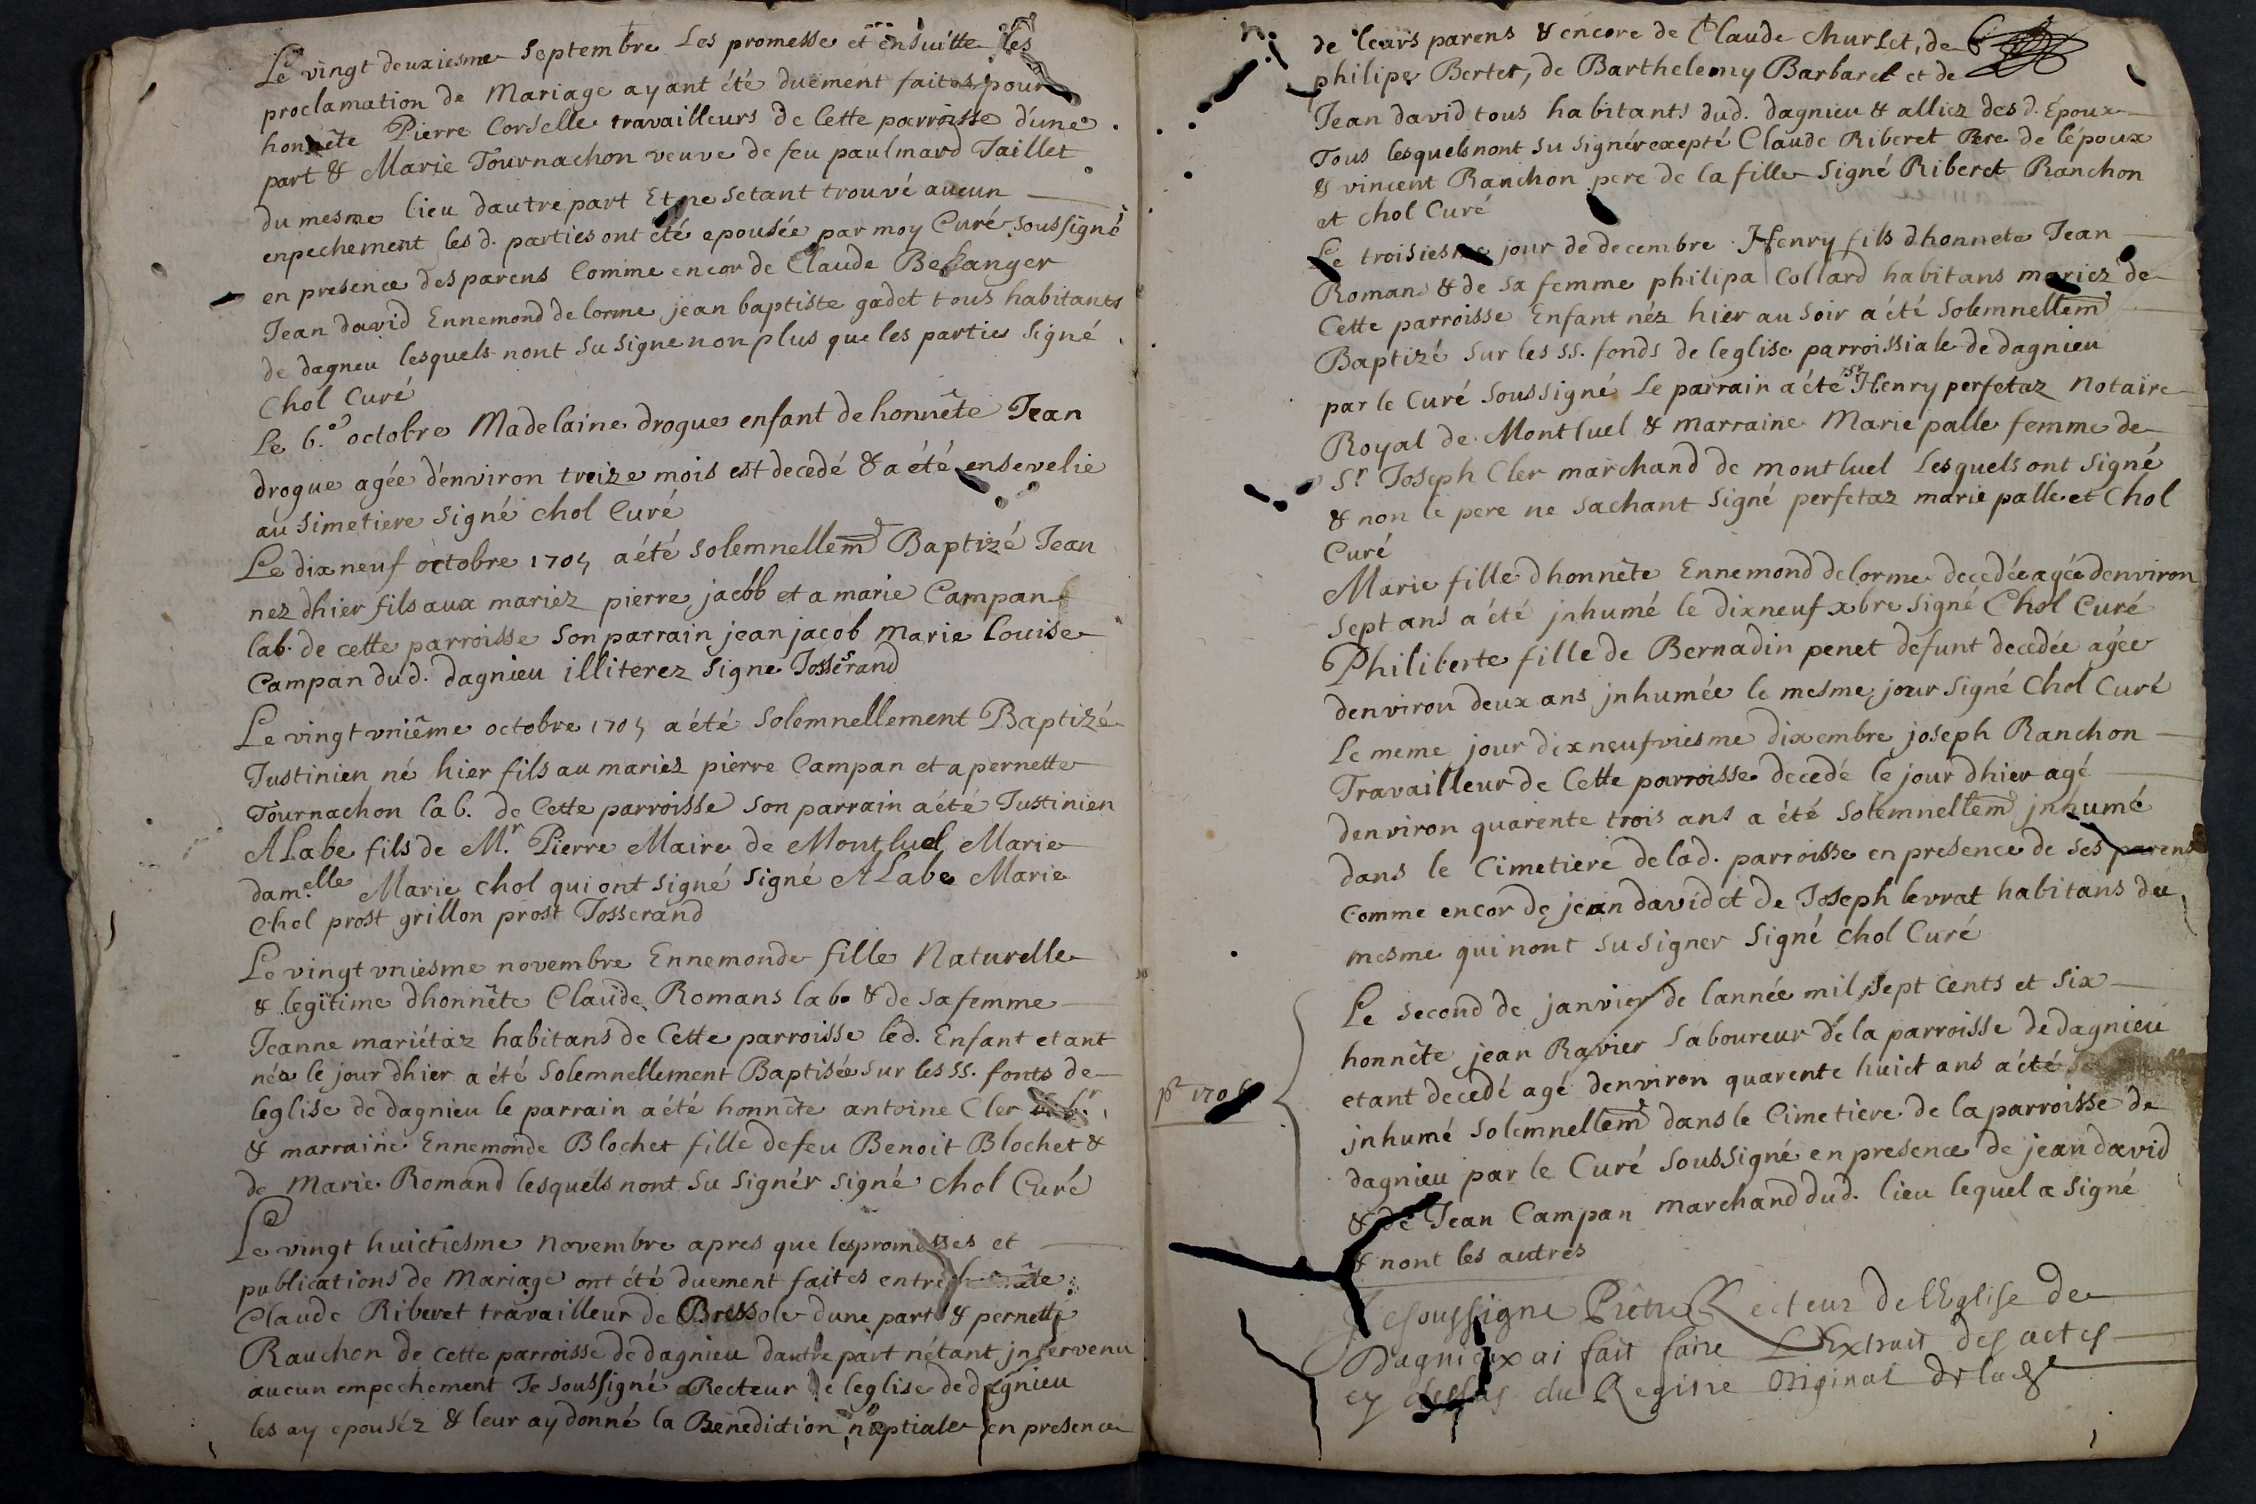 Le vingt deuxiesme Septembre Les promesse et ensuitte les
proclamation de Mariage ayant été duement faites pour
honnête Pierre Cordelle travailleurs de Cette parroisse d'une
part & Marie Tournachon veuve de feu paulmard Taillet
du mesme lieu dautre part Et ne setant trouvé aucun
enpechement les d. parties ont été epousée par moy Curé soussigné
en presence des parens Comme encor de Claude Bellanger
Jean david Ennemond de lorme jean baptiste gadet tous habitants
de dagneu lesquels nont su signe non plus que les parties Signé
Chol Curé
Le 6.e octobre Madelaine drogue enfant de honnête Jean
drogue agée d'environ treize mois est decedé & a été ensevelie
au Simetiere Signé chol Curé
Le dix neuf octobre 1705 a été solemnellemt Baptizé Jean
nez dhier fils aux mariez pierre jacob et a marie Campan
lab. de cette parroisse Son parrain jean jacob marie Louise
Campan dud. dagnieu illiterez Signe Josserand
Le vingt vniême octobre 1705 a été Solemnellement Baptizé
Justinien né hier fils au mariez pierre Campan et a pernette
Tournachon lab. de Cette parroisse Son parrain a été Justinien
ALabe fils de Mr. Pierre Maire de Montluel Marie
damelle Marie chol qui ont signé Signé ALabe Marie
Chol prost grillon prost Josserand
Le vingt vniesme novembre Ennemonde fille Naturelle
& legitime dhonnête Claude Romans lab. & de Sa femme
Jeanne mariétaz habitans de Cette parroisse led. Enfant etant
née le jour dhier a été Solemnellement Baptisée Sur les SS. fonts de
leglise de dagnieu le parrain a été honnête antoine Cler
& marraine Ennemonde Blochet fille defeu Benoit Blochet &
de Marie Romand lesquels nont Su Signér Signé chol Curé
Le vingt huictiesme Novembre apres que les promesses et
publications de Mariage ont été duement faites entre honnête
Claude Riberet travailleur de Bressole dune part & pernette
Ranchon de cette parroisse de dagnieu dautre part nétant jntervenu
aucun empechement Je Soussigné Recteur de leglise de dagnieu
les ay epouséz & leur ay donné la Benediction nuptiale en presence
de leurs parens & encore de Claude churlet, de
philipe Bertet, de Barthelemy Barbaret et de
Jean david tous habitants dud. dagnieu & alliez des d. Epoux
Tous lesquels nont su signér excepté Claude Riberet Pere de lépoux
& vincent Ranchon pere de la fille Signé Riberet Ranchon
et chol Curé
Le troisiesme jour de decembre Henry fils dhonnete Jean
Romans & de sa femme philipa Collard habitans mariez de
Cette parroisse Enfant néz hier au Soir a été Solemnellemt
Baptizé Sur les SS. fonds de leglise parroissiale de dagnieu
par le Curé Soussigné Le parrain a été Sr Henry perfetaz Notaire
Royal de Montluel & marraine Marie palle femme de
Sr Joseph Cler marchand de montluel Lesquels ont Signé
& non le pere ne Sachant Signé perfetaz marie palle et Chol
Curé
Marie fille dhonnête Ennemond delorme decedée agée denviron
Sept ans a été jnhumé le dixneuf xbre Signé Chol Curé
Philiberte fille de Bernadin penet defunt decedée agée
denviron deux ans jnhumée le mesme jour Signé Chol Curé
Le meme jour dixneufviesme dixembre joseph Ranchon
Travailleur de Cette parroisse decedé le jour dhier agé
denviron quarente trois ans a été Solemnellemt jnhumé
dans le Cimetiere de lad. parroisse en presence de ses parens
Comme encor de jean david et de Joseph levrat habitans du
mesme qui nont su signer Signé chol Curé
Le Second de janvier de lannée mil Sept Cents et Six
honnête jean Ravier Laboureur de la parroisse de dagnieu
etant decedé agé denviron quarente huict ans a été
jnhumé Solemnellemt dans le Cimetiere de la parroisse de
dagnieu par le Curé Soussigné en presence de jean david
& de Jean Campan marchand dud. lieu lequel a Signé
& nont les autres
pr 1706
Je soussigne Prêtre Recteur de l'Eglise de
Dagnieux ai fait faire L'Extrait des actes
cy dessus du Registre Original